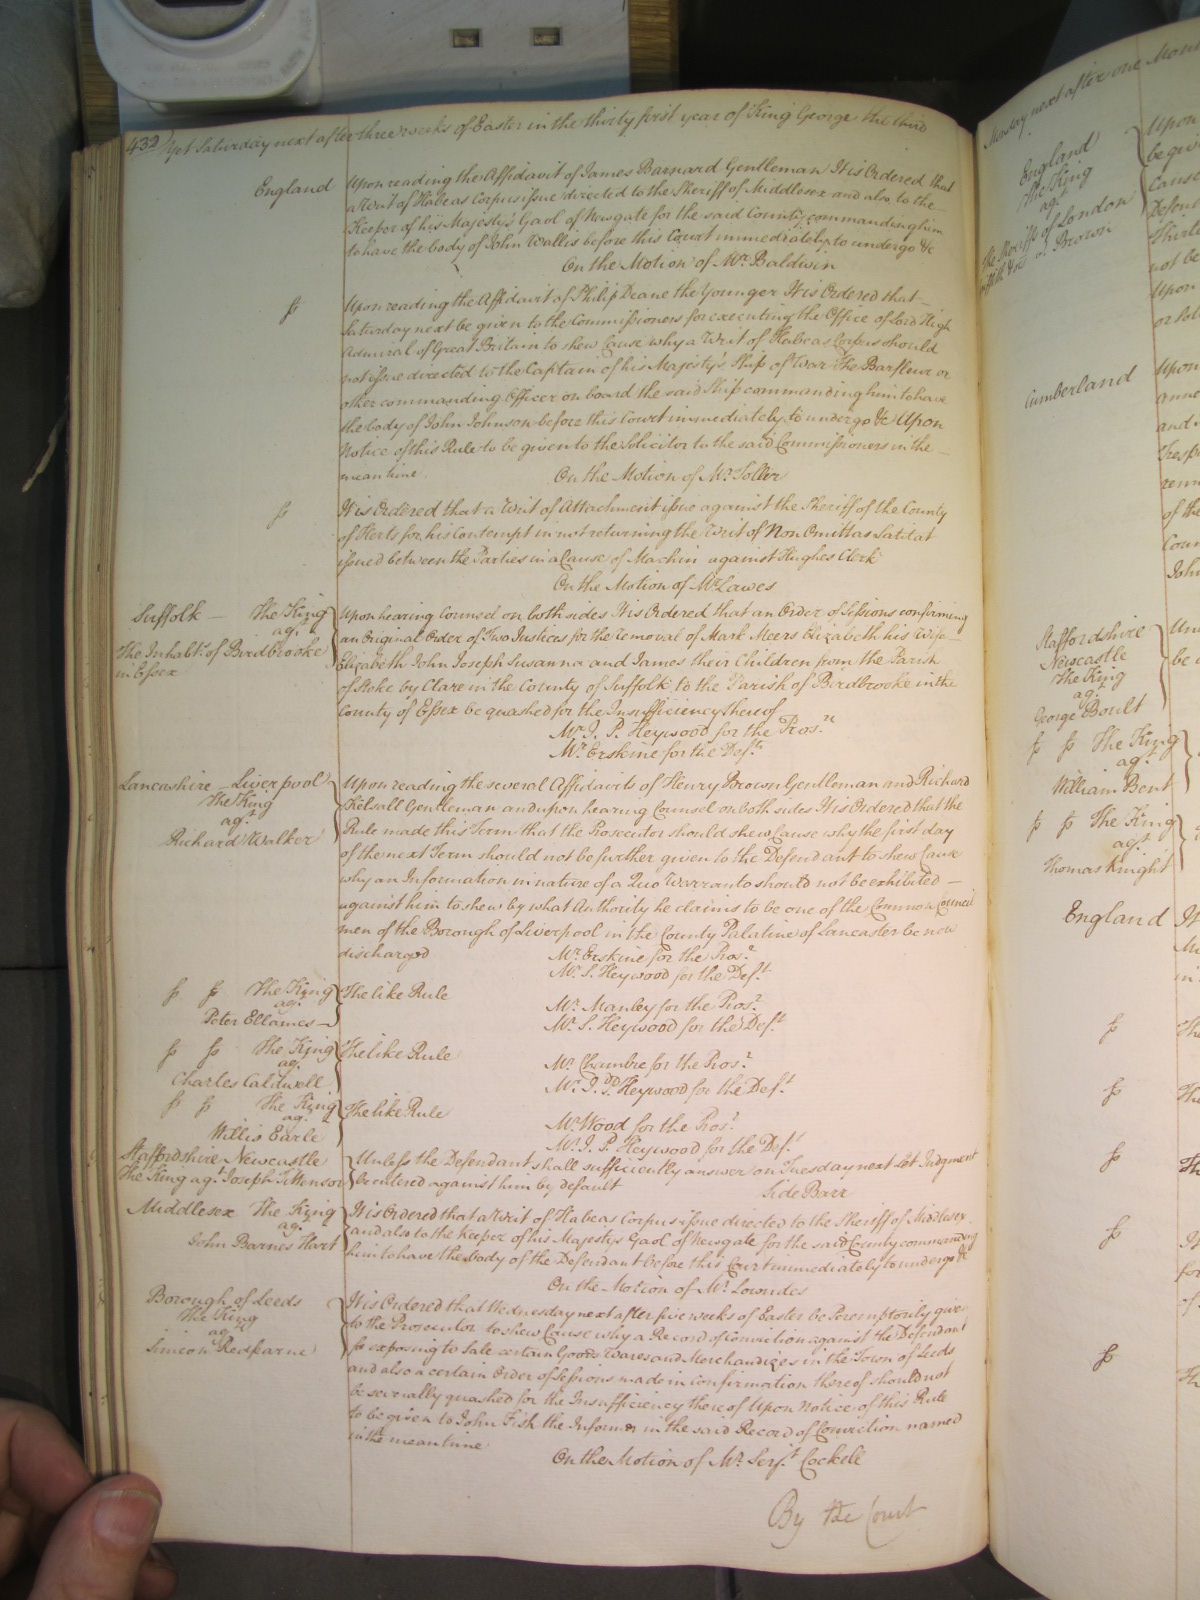 432 Yet Saturday next after three weeks of Easter in the thirty first year of King George the third
England
Upon reading the Affidavit of James Barnard Gentleman It is Ordered that
a Writ of Habeas Corpus issue directed to the Sheriff of Middlesex and also to the
Keeper of his Majesty's Gaol of Newgate for the said County commanding him
to have the body of John Wallis before this Court immediately to undergo &c
On the Motion of Mr. Baldwin
Upon reading the Affidavit of Philip Deane the Younger It is Ordered that
Saturday next be given to the Commissioners for executing the Office of Lord High
Admiral of Great Britain to shew Cause why a Writ of Habeas Corpus should
not issue directed to the Captain of his Majesty's Ship of War The Barfleur or
other commanding Officer on board the said Ship commanding him to have
the body of John Johnson before this Court immediately to undergo &c Upon
Notice of this Rule to be given to the Solicitor to the said Commissioners in the
mean time
On the Motion of Mr.
It is Ordered that a Writ of Attachment issue against the Sheriff of the County
of Herts for his Contempt in not returning the Writ of Non Omittas Latitat
issued between the Parties in a Cause of Machin against Hughes Clerk
On the Motion of Mr. Lawes
Suffolk — The King
agt.
The Inhabts. of Birdbrooke
in Essex
Upon hearing Counsel on both sides It is Ordered that an Order of Sessions confirming
an Original Order of Two Justices for the removal of Mark Meers Elizabeth his Wife
Elizabeth John Joseph Susanna and James their Children from the Parish
of Stoke by Clare in the County of Suffolk to the Parish of Birdbrooke in the
County of Essex be quashed for the Insufficiency thereof
Mr. J. P. Heywood for the Prosn.
Mr. Erskine for the Defts.
Lancashire — Liverpool
The King
agt.
Richard Walker
Upon reading the several Affidavits of Henry Brown Gentleman and Richard
Kelsall Gentleman and upon hearing Counsel on both sides It is Ordered that the
Rule made this Term that the Prosecutor should shew Cause why the first day
of the next Term should not be further given to the Defendant to shew Cause
why an Information in nature of a Quo Warranto should not be exhibited —
against him to shew by what Authority he claims to be one of the Common Council
men of the Borough of Liverpool in the County Palatine of Lancaster be now
discharged
Mr. Erskine for the Prosr.
Mr. S. Heywood for the Deft.
The King
agt.
Peter Ellames
The like Rule
Mr. Manley for the Prosr.
Mr. S. Heywood for the Deft.
The King
agt.
Charles Caldwell
The like Rule
Mr. Chambre for the Prosr.
Mr. J. P. Heywood for the Deft.
The King
agt.
Willis Earle
The like Rule
Mr. Wood for the Prosr.
Mr. J. P. Heywood for the Deft.
Staffordshire Newcastle
The King agt. Joseph Tittensor
Unless the Defendant shall sufficiently answer on Tuesday next let Judgment
be entered against him by default
Side Barr
Middlesex The King
agt.
John Barnes Hart
It is Ordered that a Writ of Habeas Corpus issue directed to the Sheriff of Middlesex
and also to the Keeper of his Majestys Gaol of Newgate for the said County commanding
him to have the body of the Defendant before this Court immediately to undergo &c
On the Motion of Mr. Lowndes
Borough of Leeds
The King
agt.
Simeon Redsparne
It is Ordered that Wednesday next after five weeks of Easter be Peremptorily given
to the Prosecutor to shew Cause why a Record of Conviction against the Defendant
for exposing to Sale certain Goods Wares and Merchandizes in the Town of Leeds
and also a certain Order of Sessions made in confirmation thereof should not
be severally quashed for the Insufficiency thereof Upon Notice of this Rule
to be given to John Fish the Informer in the said Record of Conviction named
in the mean time
On the Motion of Mr. Serjt. Cockell
By the Court
Monday next after one Mon
England
The King
agt.
The Sheriffs of London
Brown
Upon
be give
Cause
Defend
Thirte
not be
Upon
Cumberland
Upon
anne
and
Tresp
rem
of the
Coun
John
Staffordshire
Newcastle
The King
agt.
George Boult
Un
be
The King
agt.
William Bent
The King
agt.
Thomas Knight
England
It
in
The
The
Th
It
for
of